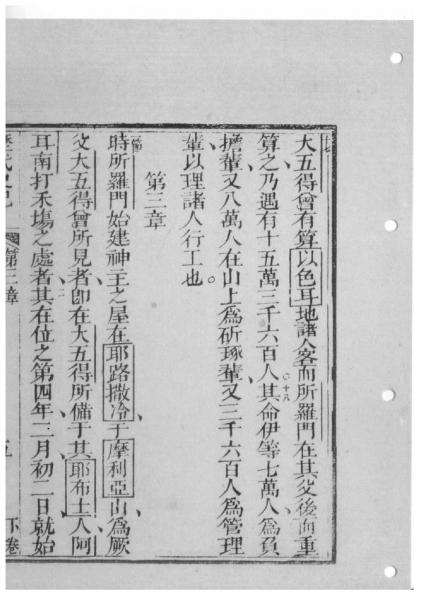 十七
大五得曾有算以色耳地諸人客而所羅門在其父後而重
算之乃遇有十五萬三千六百人其命伊等七萬人為負
十八
擔輩又八萬人在山上為斫琢輩又三千六百人為管理
輩以理諸人行工也
第三章
第一節
時所羅門始建神主之屋在耶路撒冷于摩利亞山為厥
父大五得曾所見者即在大五得所備于其耶布士人阿
二
耳南打禾塲之處者其在位之第四年二月初二日就始
第三章
五
下卷